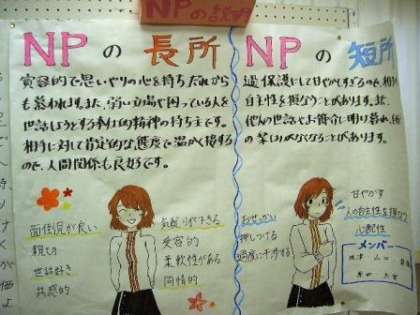 NPの説明
NPの長所
寛容的で思いやりの心を持ちだれから
も慕われます。また、弱い立場や困っている人を
世話しようとする奉仕的精神の持ち主です。
相手に対して肯定的な態度で温かく接する
ので、人間関係も良好です。
面倒見が良い
親切
世話好き
共感的
気配りができる
受容的
柔軟性がある
同情的
NPの短所
過保護にして甘やかしすぎるので、相手の
自主性を損なうことがあります。また、
他人の世話やお節介に明け暮れ、
がなくなることがあります。
おせっかい
押しつける
過度に干渉する
甘やかす
人の自主性を損なう
心配性
メンバー